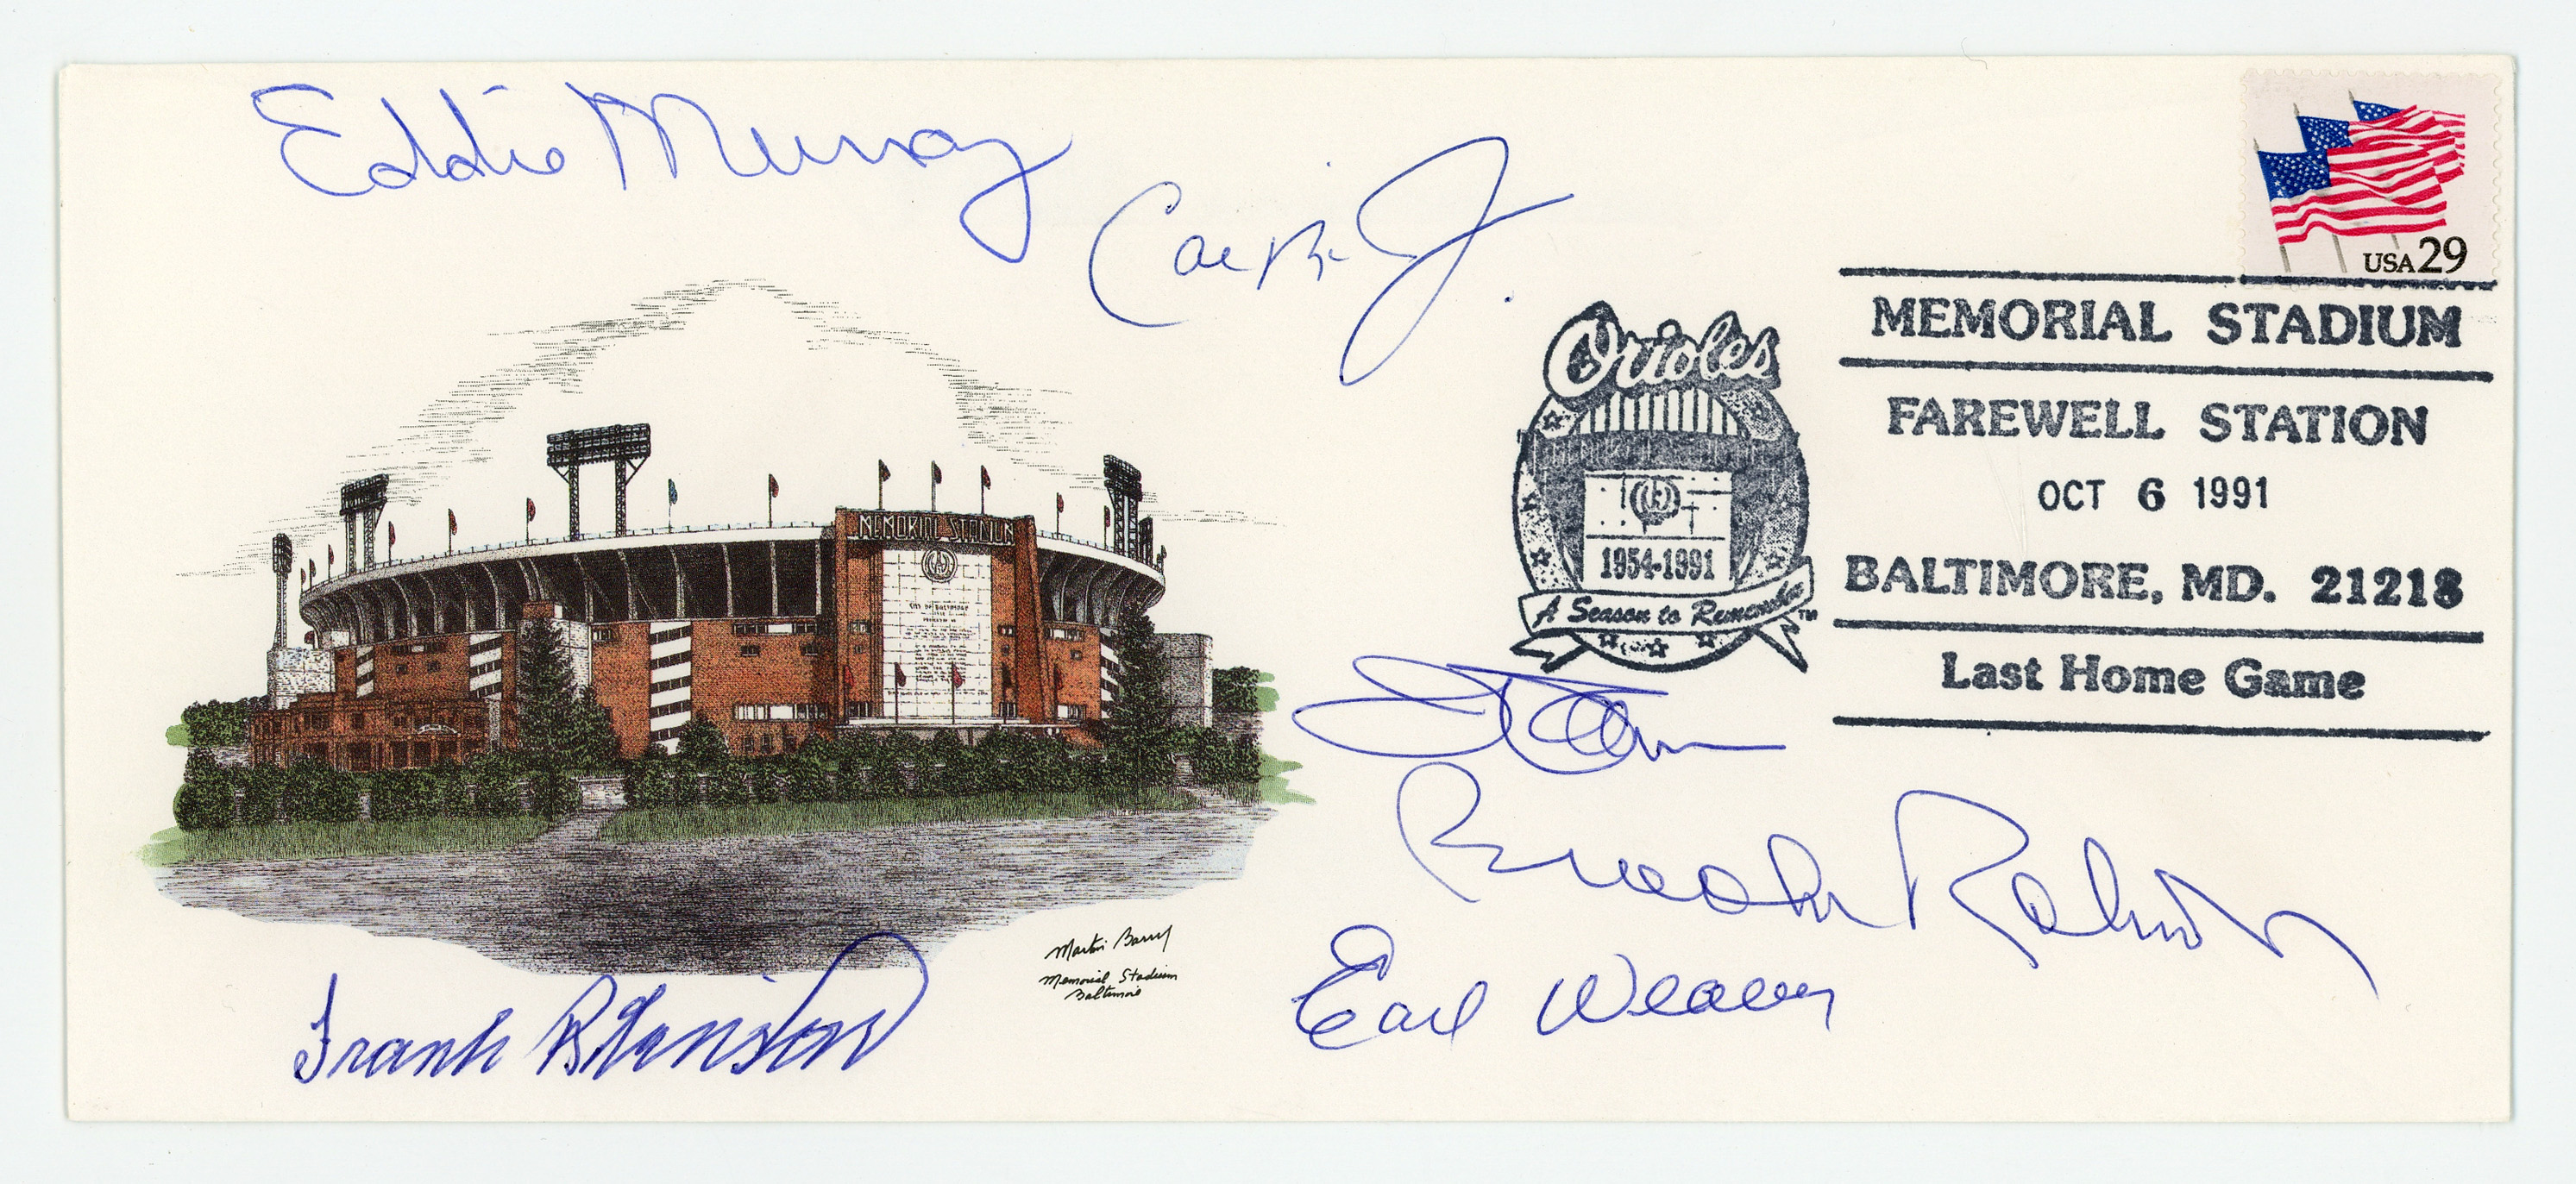 Eddie Murray
Cal Rip Jr.
USA 29
MEMORIAL STADIUM
FAREWELL STATION
OCT 6 1991
BALTIMORE, MD. 21218
Last Home Game
Orioles
1954-1991
A Season to Remember
TM
MEMORIAL STADIUM
CITY OF BALTIMORE
Brooks Robinson
Earl Weaver
Martin Barry
Memorial Stadium
Baltimore
Frank Robinson